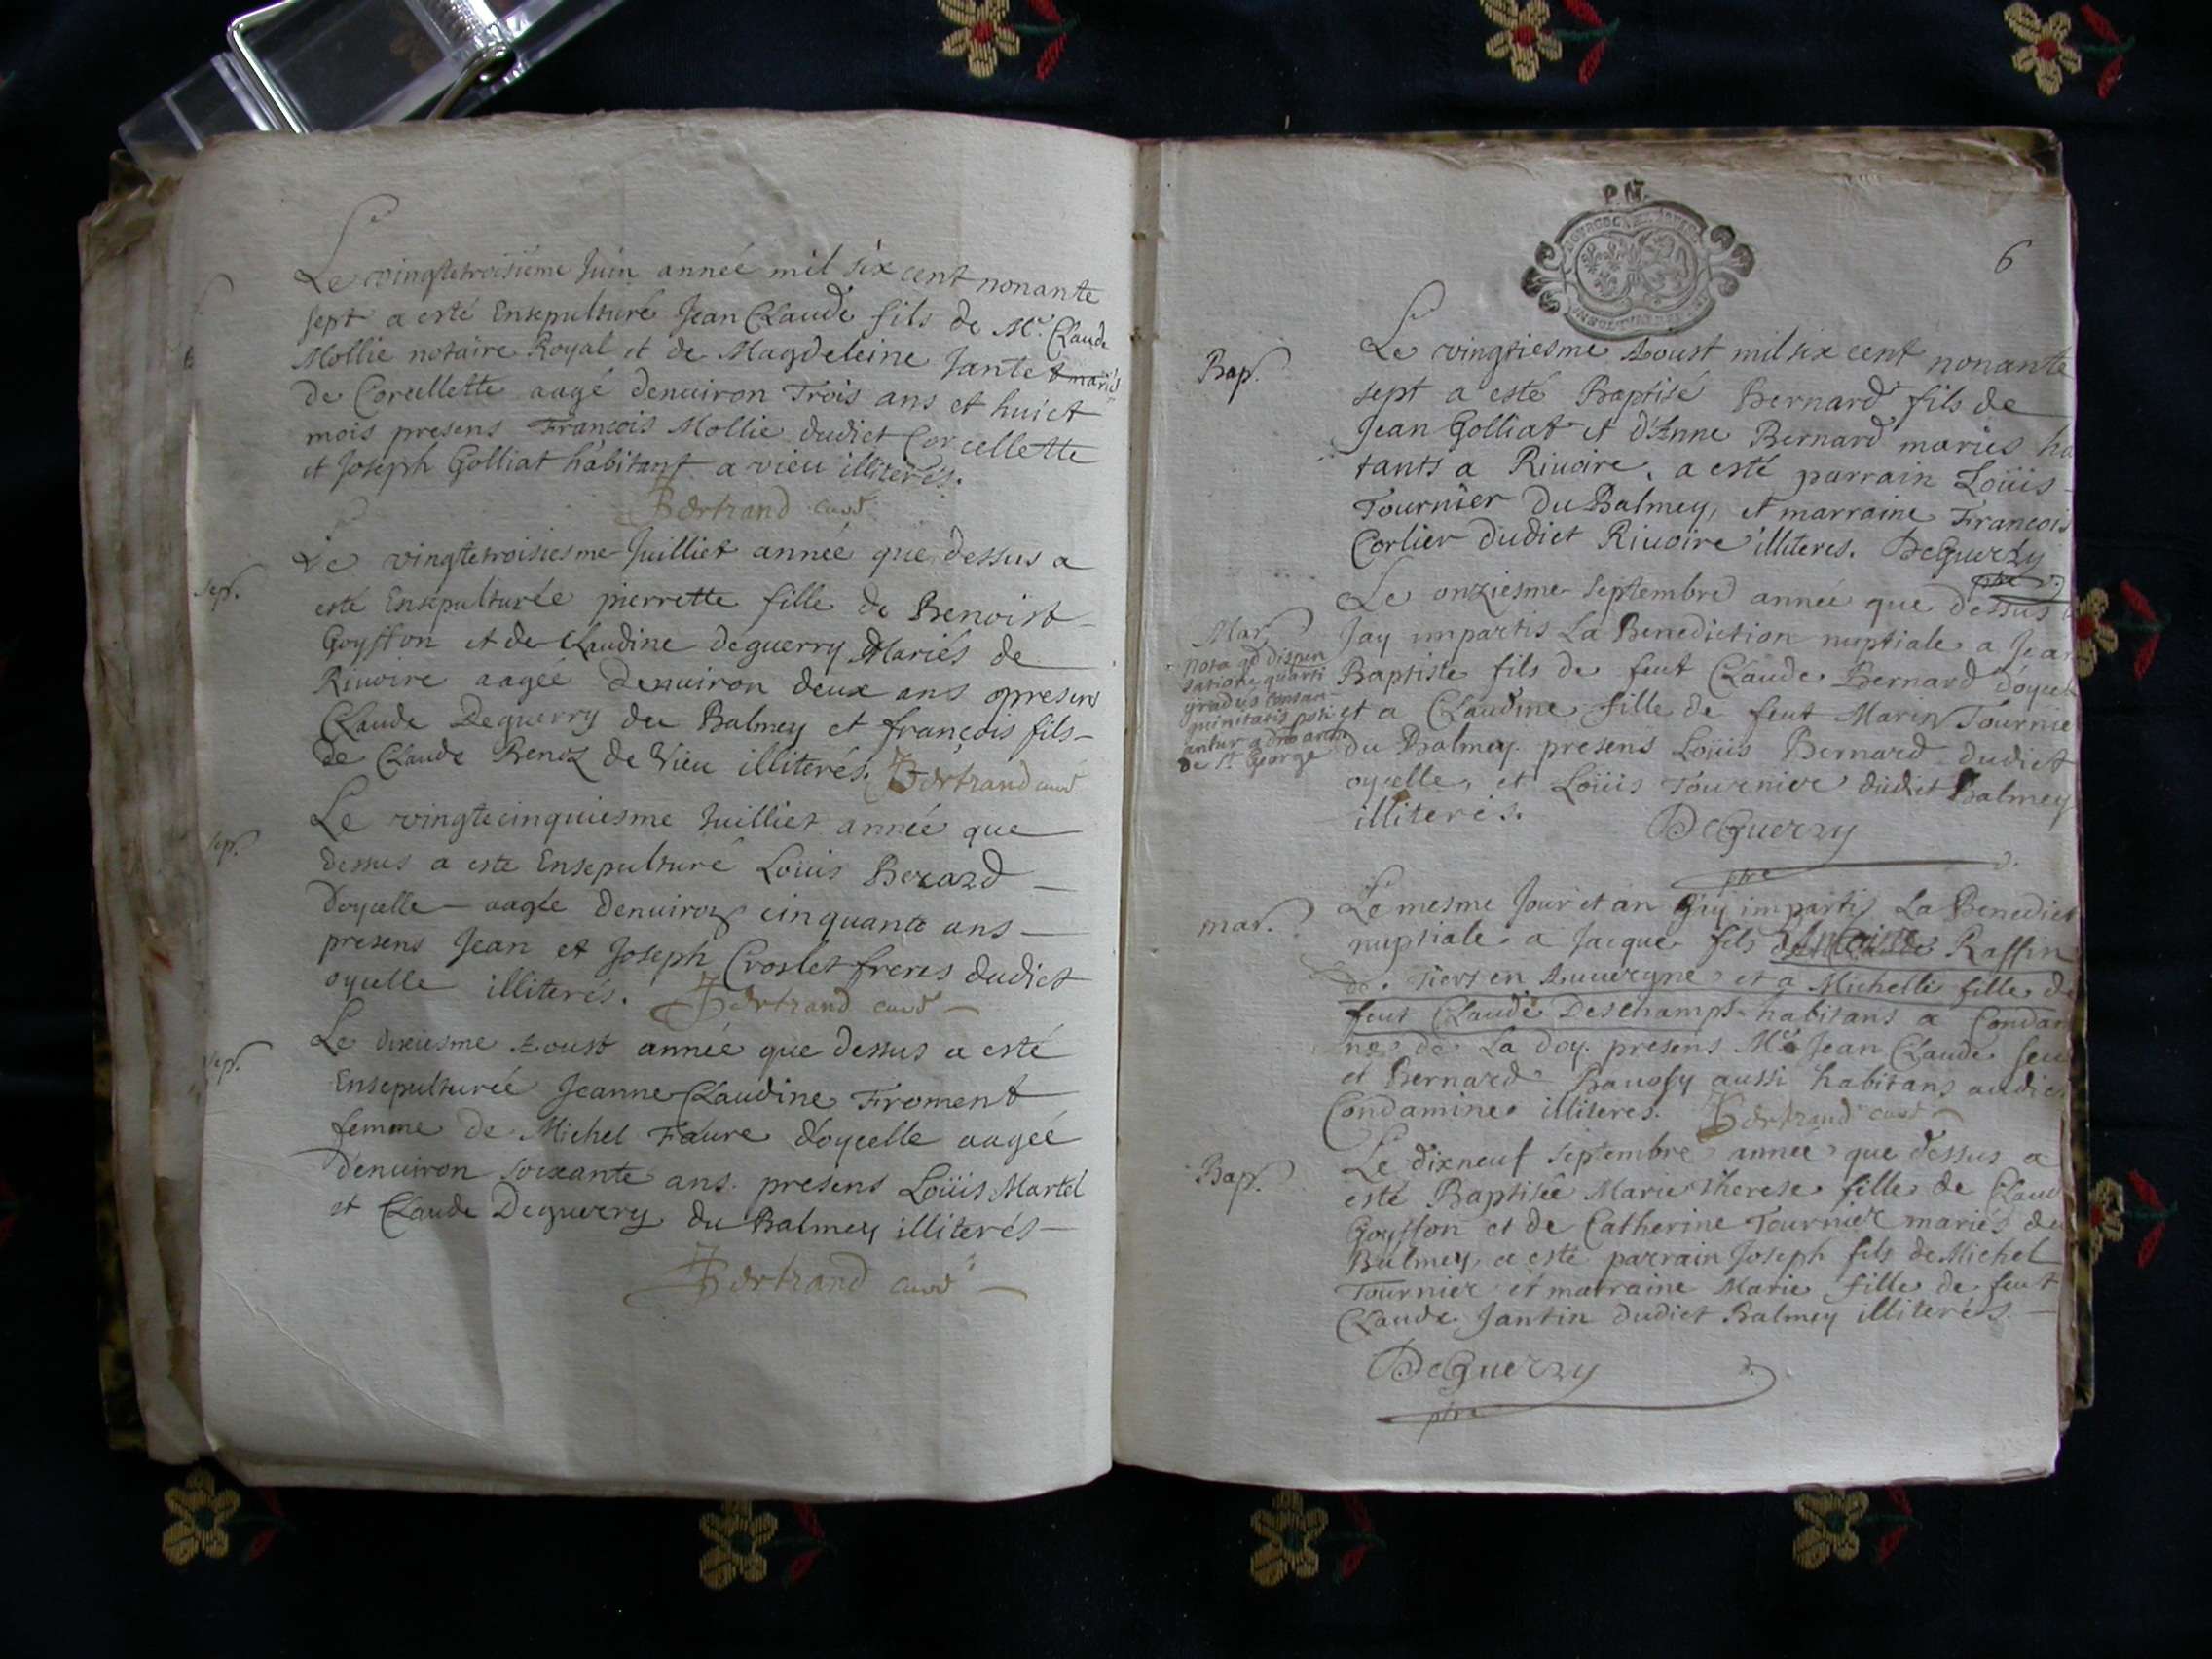 Le vingtetroisiéme Juin année mil six cent nonante
sept a esté Ensepulturé Jean Claude fils de Me. Claude
Mollie notaire Royal et de Magdeleine Jantet mariés
de Corcellette aagé denuiron Trois ans et huict
mois presens François Mollie dudict Corcellette
et Joseph Golliat habitant a vieu illiterés.
Bertrand curé
sep.
Le vingtetroisiesme Juilliet année que dessus a
esté Ensepulturée pierrette fille de Benoist
Goyffon et de Claudine deguerry Mariés de
Riuoire aagée denuiron deux ans presens
Claude Deguerry du Balmey et françois fils
de Claude Benoz de Vieu illiterés. Bertrand curé
sep.
Le vingtecinquiesme Juilliet année que
dessus a esté Ensepulturé Loüis Berard
doycelle aagée denuiron cinquante ans
presens Jean et Joseph Croslet freres dudict
oycelle illiterés. Bertrand curé
sep.
Le dixiesme Aoust année que dessus a esté
Ensepulturée Jeanne Claudine Froment
femme de Michel Faure d'oycelle aagée
denuiron soixante ans. presens Loüis Martel
et Claude Deguerry du Balmey illiterés
Bertrand curé
P. N.
6
Bap.
Le vingtiesme Aoust mil six cent nonante
sept a esté Baptisé Bernard fils de
Jean Golliat et d'Anne Bernard mariés ha
tants a Riuoire, a esté parrain Loüis
Tournier Du Balmey, et marraine Francois
Corlier dudict Riuoire illiteres. DeGuerry
ptre
Mar.
nota qd dispen
satione quarti
gradus consan
guinitatis poti
antur a Dno archi
de St George
Le onziesme Septembre année que dessus
Jay impartis La Benediction nuptiale a Jean
Baptiste fils de feut Claude Bernard d'oycel
et a Claudine fille de feut Marin Tournie
du Balmey. presens Louis Bernard dudict
oycelle, et Loüis Tournier dudict Balmey
illiterés.
DeGuerry
ptre
mar.
Le mesme Jour et an Jay impartis La Benedict
nuptiale a Jacque fils Raffin
de Tiers en Auuergne et a Michelle fille de
feut Claude Deschamps habitans a Condam
ne de La doy. presens Me Jean Claude
et Bernard aussi habitans audict
Condamine illiteres. Bertrand curé
Bap.
Le dixneuf Septembre année que dessus a
esté Baptisée Marie Therese fille de Claud
Goyffon et de Catherine Tournier mariés du
Balmey, a esté parrain Joseph fils de Michel
Tournier et marraine Marie fille de feut
Claude Jantin dudict Balmey illiterés.
DeGuerry
ptre